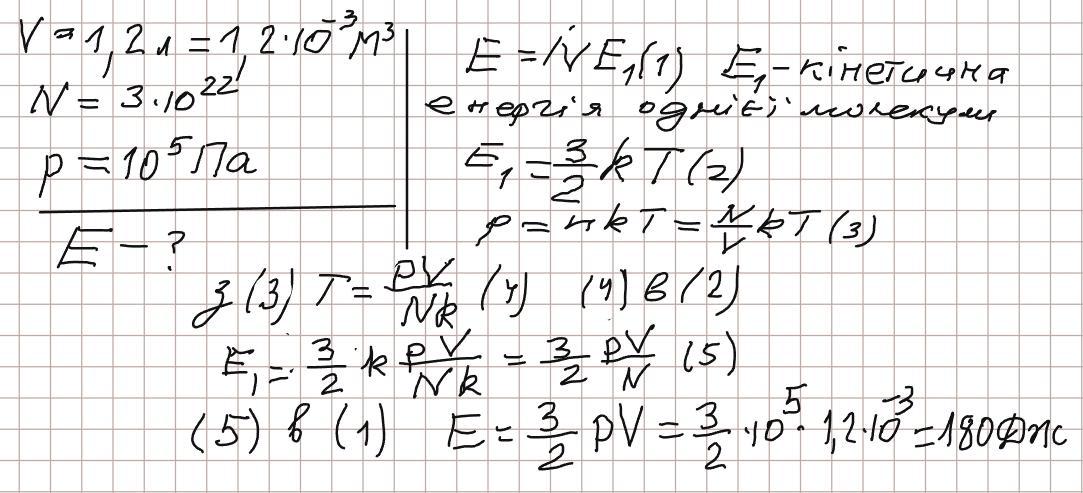 V = 1,2 л = 1,2·10⁻³ м³
N = 3·10²²
p = 10⁵ Па
E - ?
E = N E₁ (1) E₁ - кінетична
енергія однієї молекули
E₁ = 3/2 k T (2)
p = n k T = N/V k T (3)
з (3) T = pV/Nk (4) (4) в (2)
E₁ = 3/2 k pV/Nk = 3/2 pV/N (5)
(5) в (1) E = 3/2 pV = 3/2 ·10⁵· 1,2·10⁻³ = 180 Дж